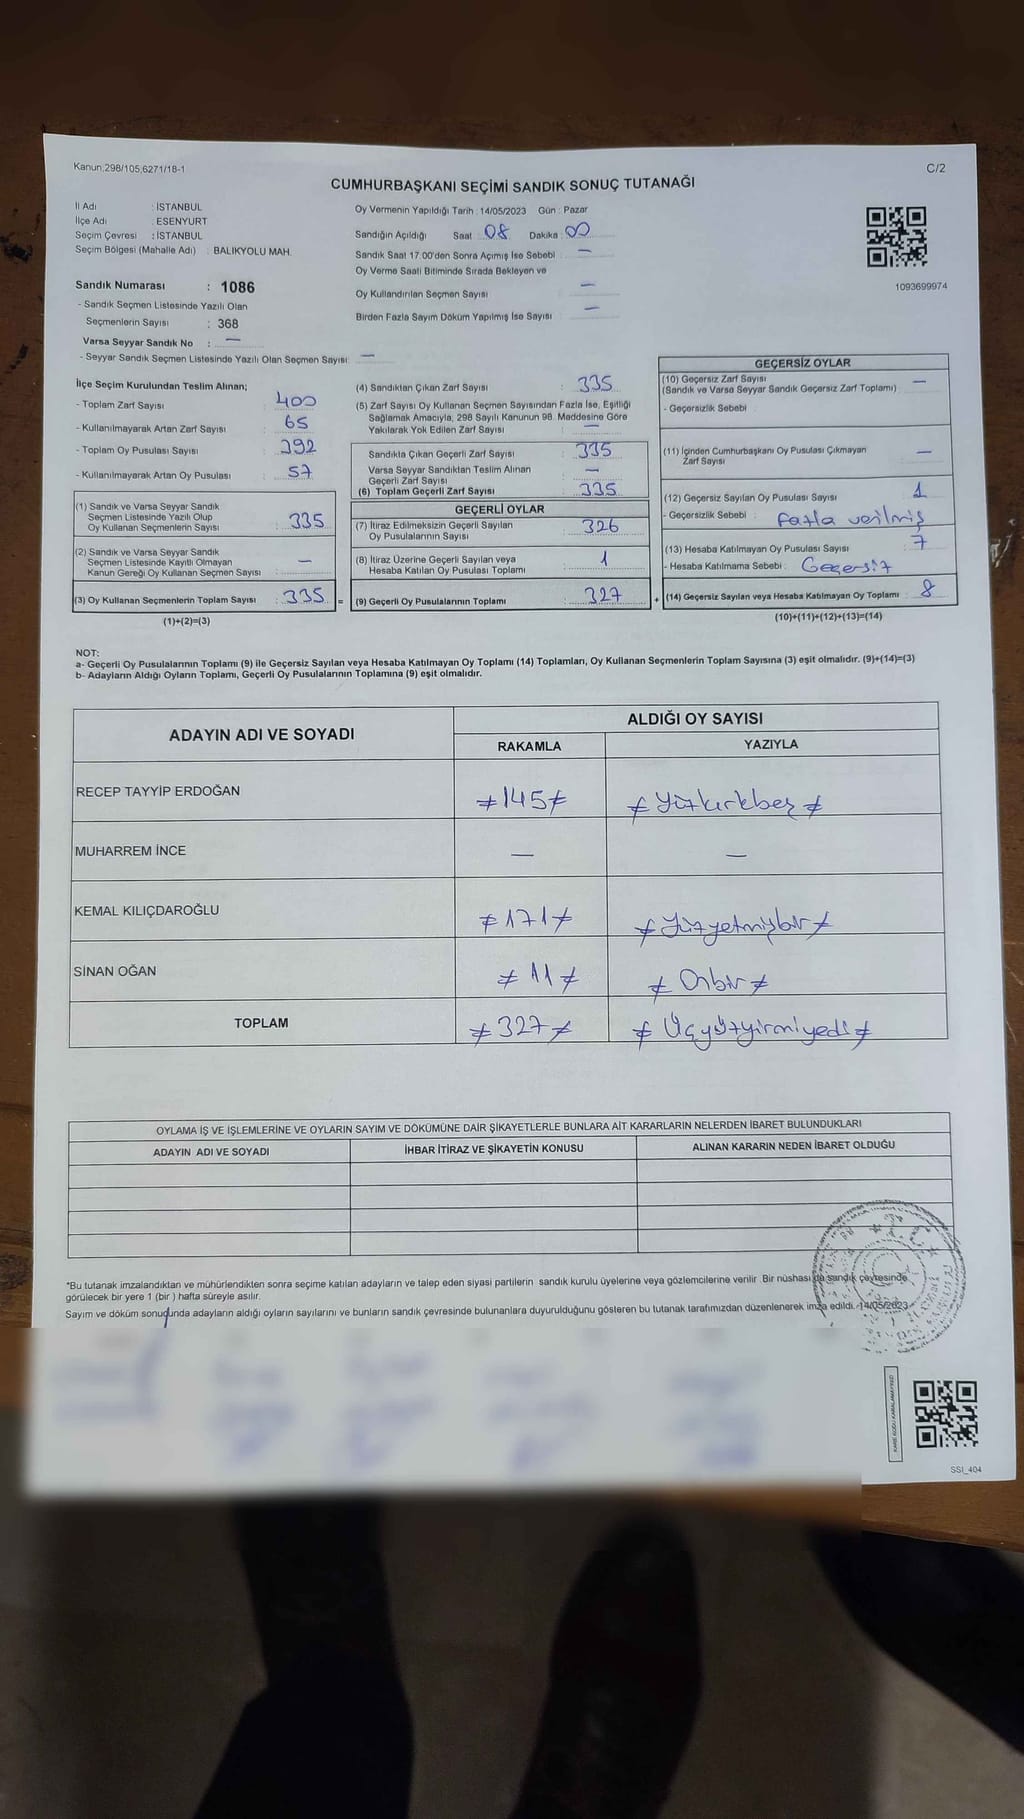 Kanun,298/105,6271/18-1
C/2
CUMHURBAŞKANI SEÇİMİ SANDIK SONUÇ TUTANAĞI
İl Adı : İSTANBUL
İlçe Adı : ESENYURT
Seçim Çevresi : İSTANBUL
Seçim Bölgesi (Mahalle Adı) : BALIKYOLU MAH.
Sandık Numarası : 1086
- Sandık Seçmen Listesinde Yazılı Olan
Seçmenlerin Sayısı : 368
Varsa Seyyar Sandık No : —
- Seyyar Sandık Seçmen Listesinde Yazılı Olan Seçmen Sayısı: —
Oy Vermenin Yapıldığı Tarih : 14/05/2023 Gün : Pazar
Sandığın Açıldığı Saat : 08 Dakika : 00
Sandık Saat 17.00'den Sonra Açımış İse Sebebi : —
Oy Verme Saati Bitiminde Sırada Bekleyen ve
Oy Kullandırılan Seçmen Sayısı : —
Birden Fazla Sayım Döküm Yapılmış İse Sayısı : —
1093699974
İlçe Seçim Kurulundan Teslim Alınan;
- Toplam Zarf Sayısı : 400
- Kullanılmayarak Artan Zarf Sayısı : 65
- Toplam Oy Pusulası Sayısı : 392
- Kullanılmayarak Artan Oy Pusulası : 57
(1) Sandık ve Varsa Seyyar Sandık
Seçmen Listesinde Yazılı Olup
Oy Kullanan Seçmenlerin Sayısı : 335
(2) Sandık ve Varsa Seyyar Sandık
Seçmen Listesinde Kayıtlı Olmayan
Kanun Gereği Oy Kullanan Seçmen Sayısı : —
(3) Oy Kullanan Seçmenlerin Toplam Sayısı : 335 =
(1)+(2)=(3)
(4) Sandıktan Çıkan Zarf Sayısı : 335
(5) Zarf Sayısı Oy Kullanan Seçmen Sayısından Fazla İse, Eşitliği
Sağlamak Amacıyla, 298 Sayılı Kanunun 98. Maddesine Göre
Yakılarak Yok Edilen Zarf Sayısı : —
Sandıkta Çıkan Geçerli Zarf Sayısı : 335
Varsa Seyyar Sandıktan Teslim Alınan
Geçerli Zarf Sayısı : —
(6) Toplam Geçerli Zarf Sayısı : 335
GEÇERLİ OYLAR
(7) İtiraz Edilmeksizin Geçerli Sayılan
Oy Pusulalarının Sayısı : 326
(8) İtiraz Üzerine Geçerli Sayılan veya
Hesaba Katılan Oy Pusulası Toplamı : 1
(9) Geçerli Oy Pusulalarının Toplamı : 327 +
GEÇERSİZ OYLAR
(10) Geçersiz Zarf Sayısı
(Sandık ve Varsa Seyyar Sandık Geçersiz Zarf Toplamı) : —
- Geçersizlik Sebebi :
(11) İçinden Cumhurbaşkanı Oy Pusulası Çıkmayan
Zarf Sayısı : —
(12) Geçersiz Sayılan Oy Pusulası Sayısı : 1
- Geçersizlik Sebebi : fazla verilmiş
(13) Hesaba Katılmayan Oy Pusulası Sayısı : 7
- Hesaba Katılmama Sebebi : Geçersiz
(14) Geçersiz Sayılan veya Hesaba Katılmayan Oy Toplamı : 8
(10)+(11)+(12)+(13)=(14)
NOT:
a- Geçerli Oy Pusulalarının Toplamı (9) ile Geçersiz Sayılan veya Hesaba Katılmayan Oy Toplamı (14) Toplamları, Oy Kullanan Seçmenlerin Toplam Sayısına (3) eşit olmalıdır. (9)+(14)=(3)
b- Adayların Aldığı Oyların Toplamı, Geçerli Oy Pusulalarının Toplamına (9) eşit olmalıdır.
ADAYIN ADI VE SOYADI
ALDIĞI OY SAYISI
RAKAMLA YAZIYLA
RECEP TAYYİP ERDOĞAN ≠145≠ ≠ Yüzkırkbeş ≠
MUHARREM İNCE — —
KEMAL KILIÇDAROĞLU ≠171≠ ≠ Yüzyetmişbir ≠
SİNAN OĞAN ≠ 11 ≠ ≠ Onbir ≠
TOPLAM ≠327≠ ≠ Üçyüzyirmiyedi ≠
OYLAMA İŞ VE İŞLEMLERİNE VE OYLARIN SAYIM VE DÖKÜMÜNE DAİR ŞİKAYETLERLE BUNLARA AİT KARARLARIN NELERDEN İBARET BULUNDUKLARI
ADAYIN ADI VE SOYADI İHBAR İTİRAZ VE ŞİKAYETİN KONUSU ALINAN KARARIN NEDEN İBARET OLDUĞU
*Bu tutanak imzalandıktan ve mühürlendikten sonra seçime katılan adayların ve talep eden siyasi partilerin sandık kurulu üyelerine veya gözlemcilerine verilir. Bir nüshası da sandık çevresinde
görülecek bir yere 1 (bir ) hafta süreyle asılır.
Sayım ve döküm sonucunda adayların aldığı oyların sayılarını ve bunların sandık çevresinde bulunanlara duyurulduğunu gösteren bu tutanak tarafımızdan düzenlenerek imza edildi. 14/05/2023
KARE KODU KARALAMAYINIZ!
SSI_404